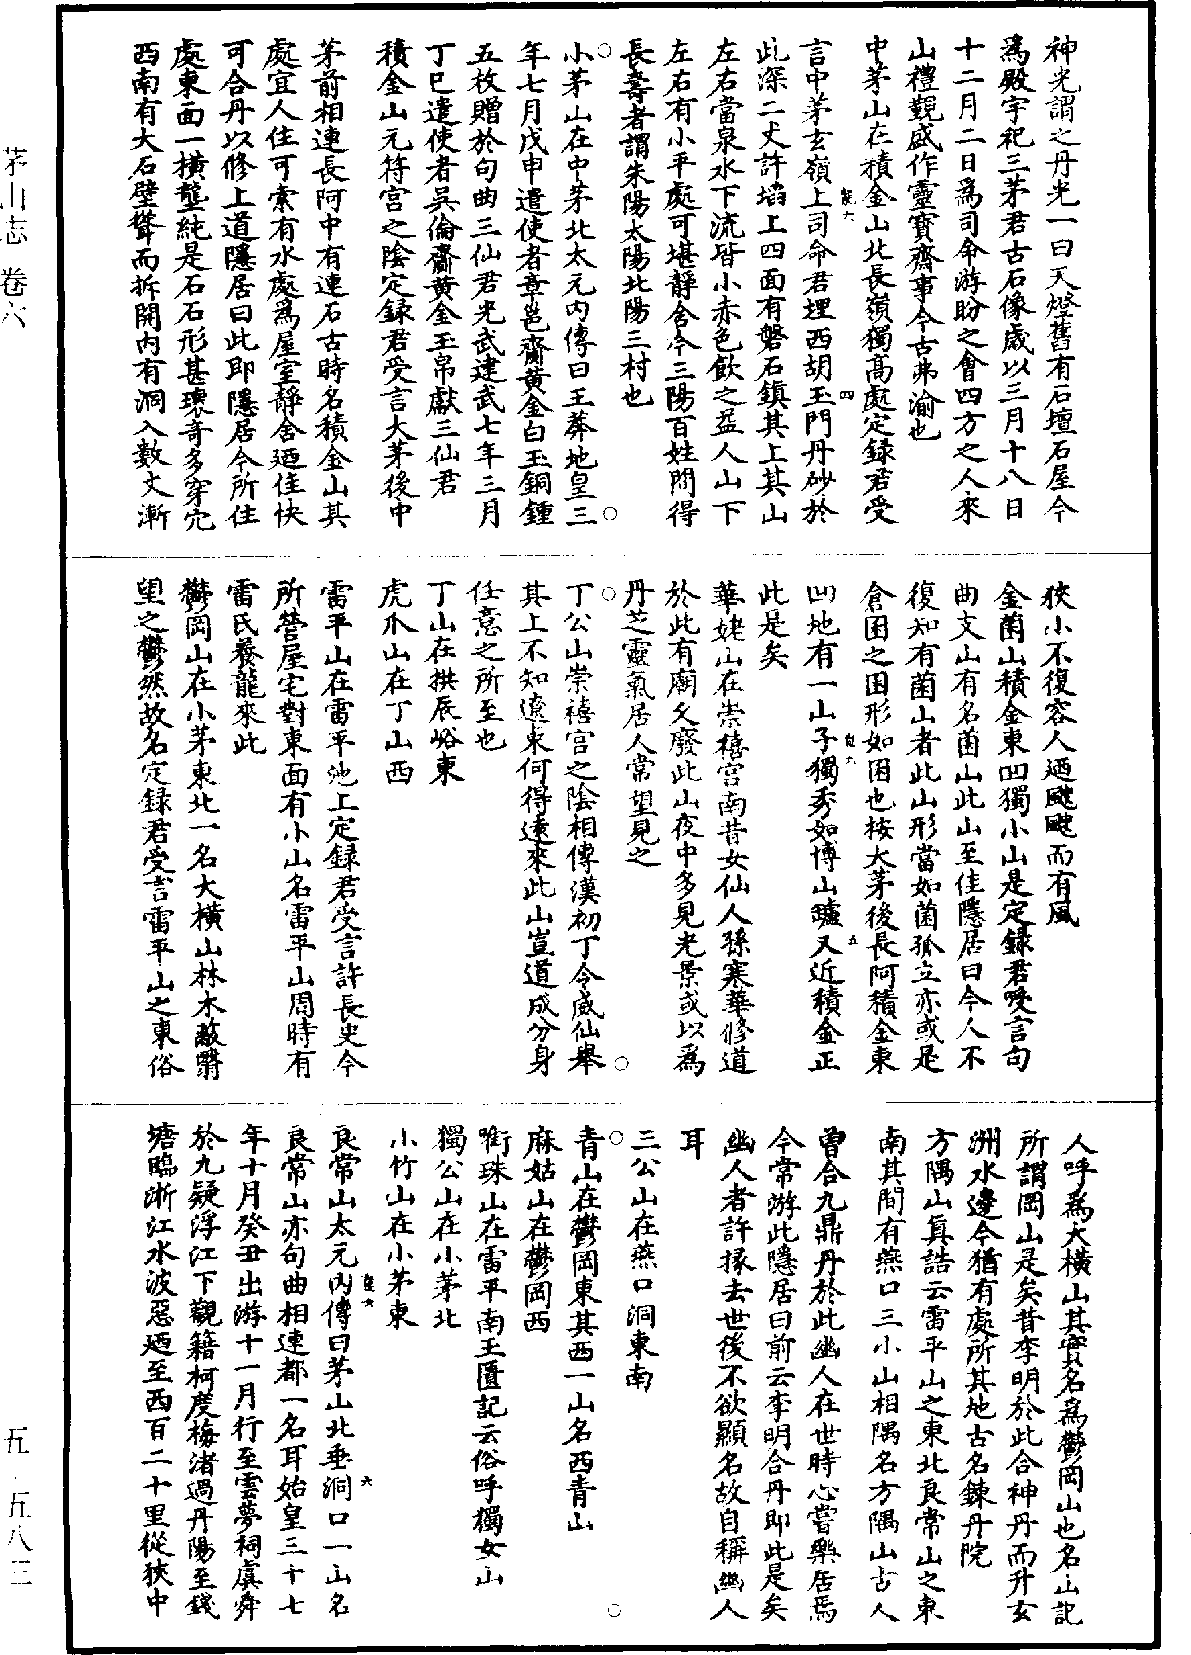 茅山志 卷六
神光謂之丹光一曰天燈舊有石壇石屋今
爲殿宇祀三茅君古石像歲以三月十八日
十二月二日爲司命游盼之會四方之人來
山禮觀盛作靈寶齋事今古弗渝也
中茅山在積金山北長嶺獨高處定録君受
言中茅玄嶺上司命君埋西胡玉門丹砂於
此深二丈許壇上四面有磐石鎮其上其山
左右當泉水下流皆小赤色飲之益人山下
左右有小平處可堪靜舍今三陽百姓問得
長壽者謂朱陽太陽北陽三村也
小茅山在中茅北太元內傳曰王莽地皇三
年七月戊申遣使者章邕齎黄金白玉銅鍾
五枚贈於句曲三仙君光武建武七年三月
丁巳遣使者吳倫齎黄金玉帛獻三仙君
積金山元符宫之陰定録君受言大茅後中
茅前相連長阿中有連石古時名積金山其
處宜人住可索有水處爲屋室靜舍廼佳快
可合丹以修上道隱居曰此即隱居今所住
處東面一横壟純是石石形甚瓌奇多穿穴
西南有大石壁聳而拆開内有洞入數丈漸
狹小不復容人廼颼颼而有風
金菌山積金東凹獨小山是定録君受言句
曲支山有名菌山此山至佳隱居曰今人不
復知有菌山者此山形當如菌孤立亦或是
倉囷之囷形如囷也按大茅後長阿積金東
凹地有一山子獨秀如博山罏又近積金正
此是矣
華姥山在崇禧宫南昔女仙人孫寒華修道
於此有廟久廢此山夜中多見光景或以爲
丹芝靈氣居人常望見之
丁公山崇禧宫之陰相傳漢初丁令威仙舉
其上不知遼東何得遠來此山豈道成分身
任意之所至也
丁山在拱辰峪東
虎爪山在丁山西
雷平山在雷平池上定録君受言許長史今
所營屋宅對東面有小山名雷平山周時有
雷氏養龍來此
鬱岡山在小茅東北一名大横山林木蔽翳
望之鬱然故名定録君受言雷平山之東俗
人呼爲大横山其實名爲鬱岡山也名山記
所謂岡山是矣昔李明於此合神丹而升玄
洲水邊今猶有處所其地古名鍊丹院
方隅山真誥云雷平山之東北良常山之東
南其間有燕口三小山相隅名方隅山古人
曾合九鼎丹於此幽人在世時心嘗樂居焉
今常游此隱居曰前云李明合丹即此是矣
幽人者許掾去世後不欲顯名故自稱幽人
耳
三公山在燕口洞東南
青山在鬱岡東其西一山名西青山
麻姑山在鬱岡西
衒珠山在雷平南玉匱記云俗呼獨女山
獨公山在小茅北
小竹山在小茅東
良常山太元内傳曰茅山北垂洞口一山名
良常山亦句曲相連都一名耳始皇三十七
年十月癸丑出游十一月行至雲夢祠虞舜
於九疑浮江下觀籍柯度梅渚過丹陽至錢
塘臨浙江水波惡廼至西百二十里從狹中
五·五八三